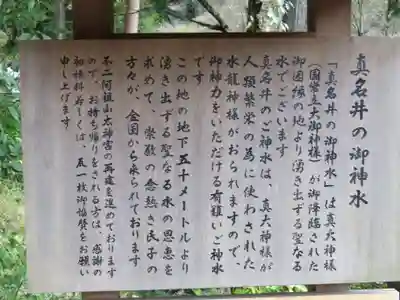 真名井の御神水
「真名井の御神水」は真大神様
（国常立大御神様）が御降臨された
御因縁の地より湧き出ずる聖なる
水でございます
真名井のご神水は、真大神様が
人類繁栄の為に使わされた
水龍神様がおられますので、
御神力をいただける有難いご神水
です
この地の地下五十メートルより
湧き出ずる聖なる水の恩恵を
求めて、崇敬の念熱き氏子の
方々が、全国から来られております
不二阿祖山太神宮の再建を進めております
ので、お持ち帰りをされる方は、感謝の
初穂料若しくは、瓦一枚御協賛をお願い
申し上げます